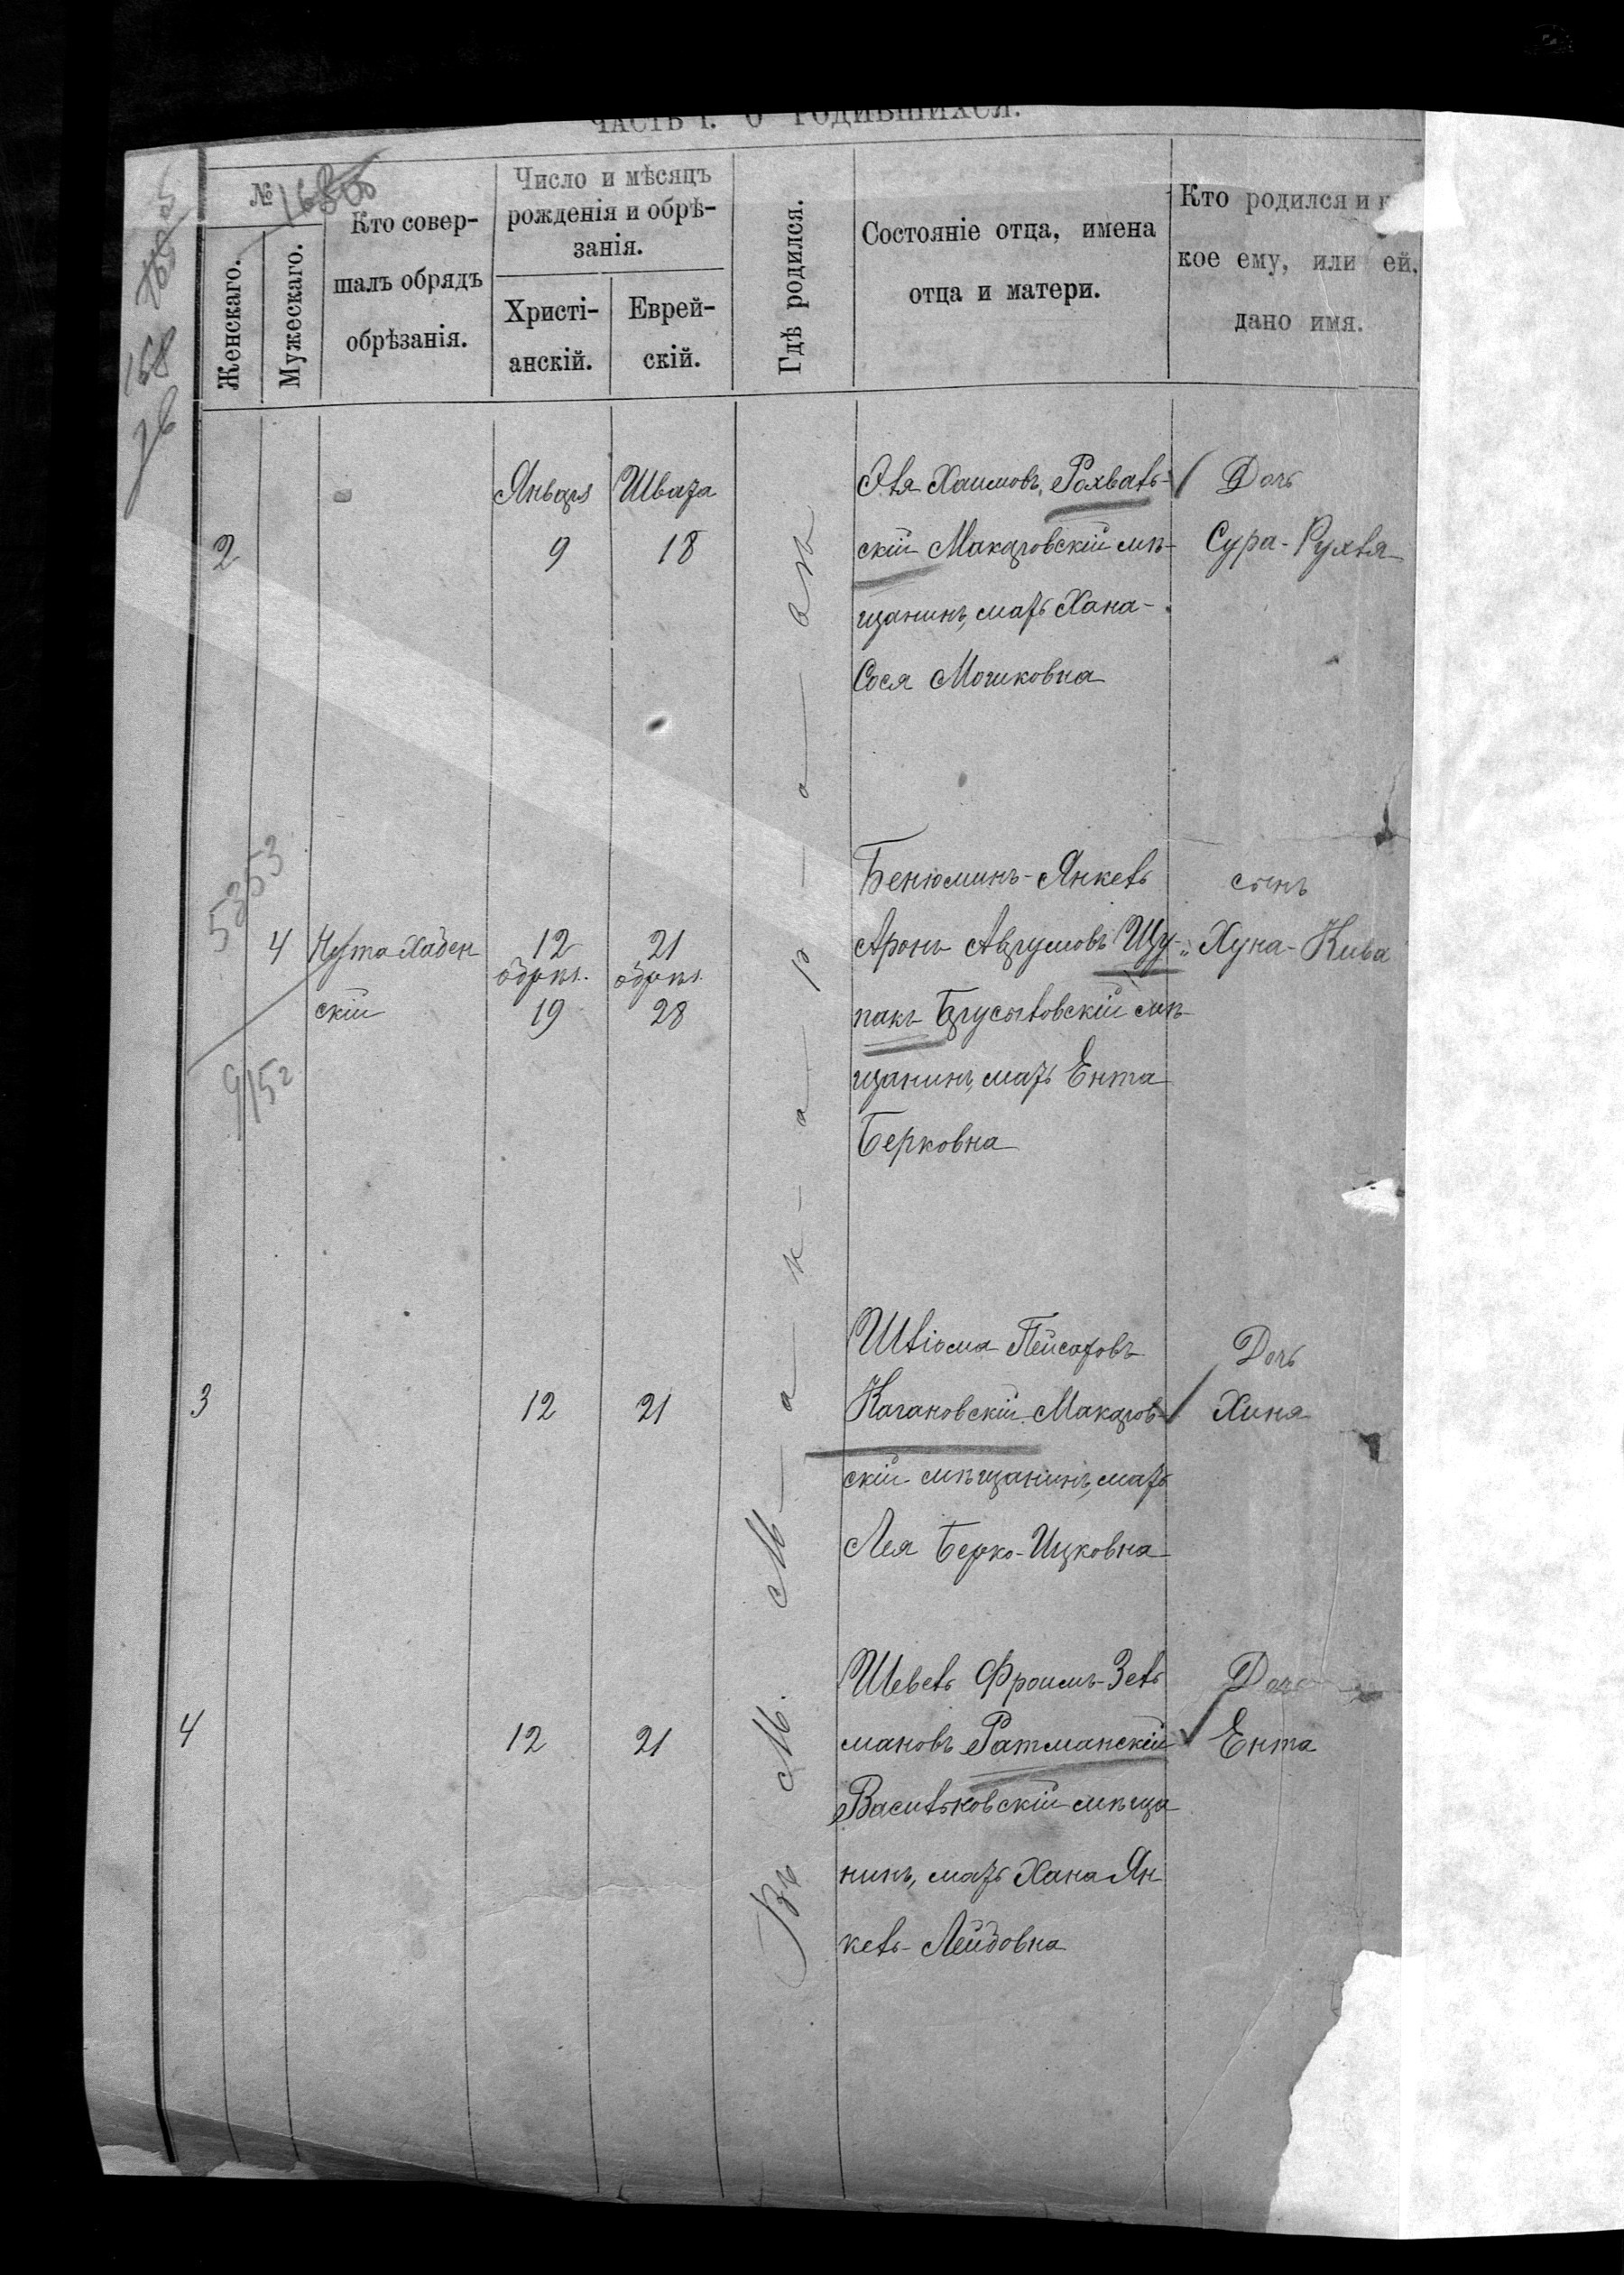 ЧАСТЬ I. О РОДИВШИХСЯ.
№
Женскаго.
Мужескаго.
Кто совер-
шалъ обрядъ
обрѣзанія.
Число и мѣсяцъ
рожденія и обрѣ-
занія.
Христі-
анскій.
Еврей-
скій.
Гдѣ родился.
Состояніе отца, имена
отца и матери.
Кто родился и к
кое ему, или ей,
дано имя.
168
Въ м. М-а-к-а-р-а-
2
Января
9
Швата
18
Эля Хаимовъ Рохваль-
скій Макаровскій мѣ-
щанинъ, мать Хана-
Сося Мошковна
Дочь
Сура-Рухля
5353
9152
4
Нута Хабен
скій
12
обрѣз.
19
21
обрѣз.
28
Бенюминъ-Янкель
Аронъ Аврумовъ Щу-
пакъ Брусиловскій мѣ-
щанинъ, мать Ента
Берковна
сынъ
Хуна-Кива
3
12
21
Шліома Пейсаховъ
Кагановскій Макаров-
скій мѣщанинъ, мать
Лея Берко-Ицковна
Дочь
Хиня
4
12
21
Шевель Фроимъ-Зель
мановъ Ратманскій
Васильковскій мѣща
нинъ, мать Хана Ян
кель-Лейбовна
Дочь
Ента